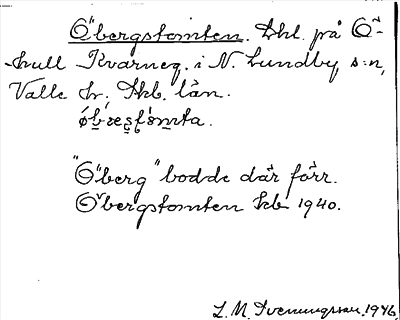 Öbergstomten. Lhl. på Ö-
kull Kvarneg. i N. Lundby s:n,
Valle hr. Skb. län.
"Öberg" bodde där förr.
Öbergstomten Ek 1940.
L. M. Svenungsson. 1946.